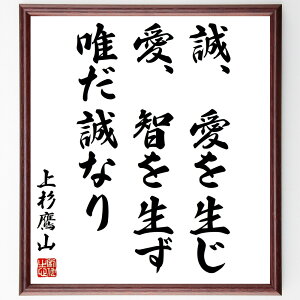 誠、愛を生じ
愛、智を生ず
唯だ誠なり
上杉鷹山